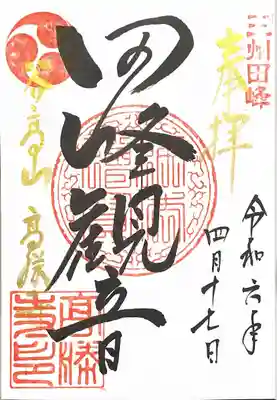 三州田峰
奉拝
令和六年
四月十七日
田峰観音
谷高山 高勝寺